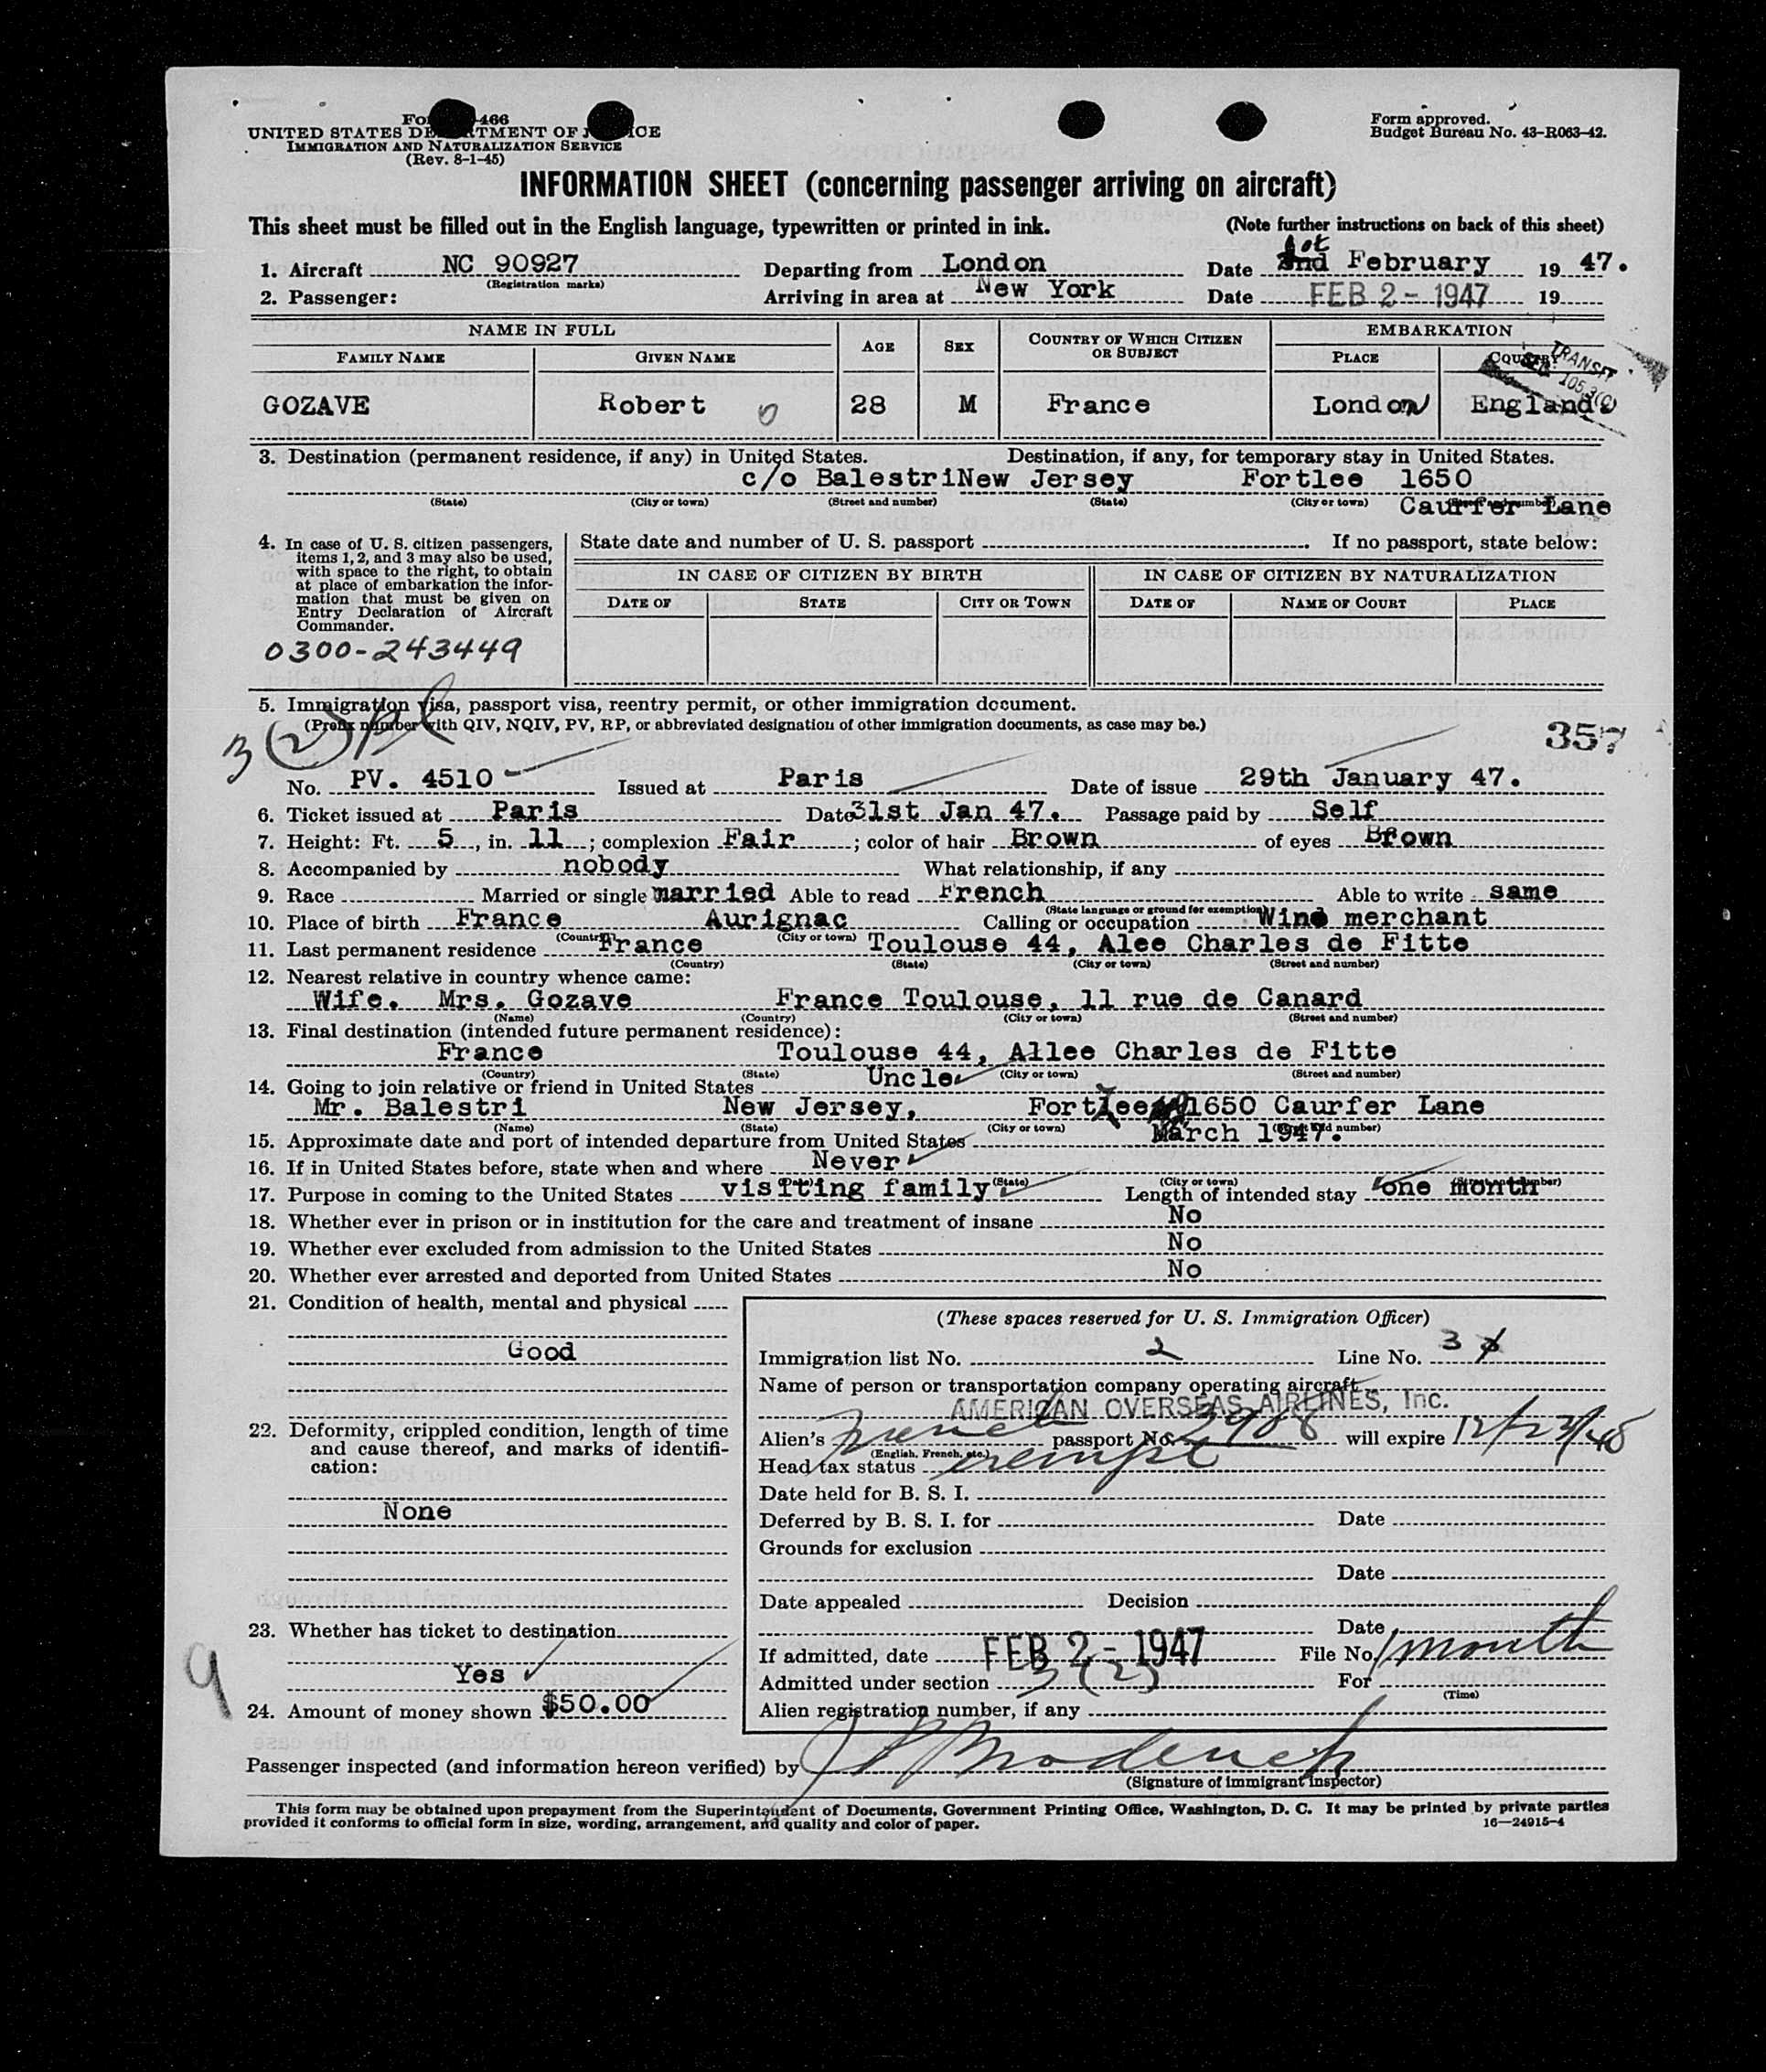 Form 466
UNITED STATES DEPARTMENT OF JUSTICE
IMMIGRATION AND NATURALIZATION SERVICE
(Rev. 8-1-45)
Form approved.
Budget Bureau No. 43-R063-42.
INFORMATION SHEET (concerning passenger arriving on aircraft)
This sheet must be filled out in the English language, typewritten or printed in ink. (Note further instructions on back of this sheet)
1. Aircraft NC 90927 Departing from London Date 2nd February 19 47.
(Registration marks)
2. Passenger: Arriving in area at New York Date FEB 2 - 1947 19
NAME IN FULL AGE SEX COUNTRY OF WHICH CITIZEN OR SUBJECT EMBARKATION
FAMILY NAME GIVEN NAME PLACE COUNTRY
TRANSIT
105.3(c)
GOZAVE Robert 28 M France London England
3. Destination (permanent residence, if any) in United States. Destination, if any, for temporary stay in United States.
c/o Balestri New Jersey Fortlee 1650
(State) (City or town) (Street and number) (State) (City or town) (Street and number)
Caurfer Lane
4. In case of U. S. citizen passengers, items 1, 2, and 3 may also be used, with space to the right, to obtain at place of embarkation the information that must be given on Entry Declaration of Aircraft Commander.
0300-243449
State date and number of U. S. passport If no passport, state below:
IN CASE OF CITIZEN BY BIRTH IN CASE OF CITIZEN BY NATURALIZATION
DATE OF STATE CITY OR TOWN DATE OF NAME OF COURT PLACE
5. Immigration visa, passport visa, reentry permit, or other immigration document.
(Prefix number with QIV, NQIV, PV, RP, or abbreviated designation of other immigration documents, as case may be.)
3(2)
357
No. PV. 4510 Issued at Paris Date of issue 29th January 47.
6. Ticket issued at Paris Date 31st Jan 47. Passage paid by Self
7. Height: Ft. 5, in. 11; complexion Fair; color of hair Brown of eyes Brown
8. Accompanied by nobody What relationship, if any
9. Race Married or single married Able to read French Able to write same
(State language or ground for exemption)
10. Place of birth France Aurignac Calling or occupation Wine merchant
(Country) (City or town)
11. Last permanent residence France Toulouse 44, Alee Charles de Fitte
(Country) (State) (City or town) (Street and number)
12. Nearest relative in country whence came:
Wife. Mrs. Gozave France Toulouse, 11 rue de Canard
(Name) (Country) (City or town) (Street and number)
13. Final destination (intended future permanent residence):
France Toulouse 44, Allee Charles de Fitte
(Country) (State) (City or town) (Street and number)
14. Going to join relative or friend in United States Uncle
Mr. Balestri New Jersey, Fortlee 1650 Caurfer Lane
(Name) (State) (City or town) (Street and number)
15. Approximate date and port of intended departure from United States March 1947.
16. If in United States before, state when and where Never
(State) (City or town) (Street and number)
17. Purpose in coming to the United States visiting family Length of intended stay one month
18. Whether ever in prison or in institution for the care and treatment of insane No
19. Whether ever excluded from admission to the United States No
20. Whether ever arrested and deported from United States No
21. Condition of health, mental and physical
Good
22. Deformity, crippled condition, length of time and cause thereof, and marks of identification:
None
23. Whether has ticket to destination
Yes
9
24. Amount of money shown $50.00
(These spaces reserved for U. S. Immigration Officer)
Immigration list No. 2 Line No. 3
Name of person or transportation company operating aircraft
AMERICAN OVERSEAS AIRLINES, Inc.
Alien's French passport No. 3908 will expire 12/23/48
(English, French, etc.)
Head tax status exempt
Date held for B. S. I.
Deferred by B. S. I. for Date
Grounds for exclusion
Date
Date appealed Decision
Date
If admitted, date FEB 2 - 1947 File No.
Admitted under section 3(2) For 1 month
(Time)
Alien registration number, if any
Passenger inspected (and information hereon verified) by
(Signature of immigrant inspector)
This form may be obtained upon prepayment from the Superintendent of Documents, Government Printing Office, Washington, D. C. It may be printed by private parties
provided it conforms to official form in size, wording, arrangement, and quality and color of paper. 16—24915-4